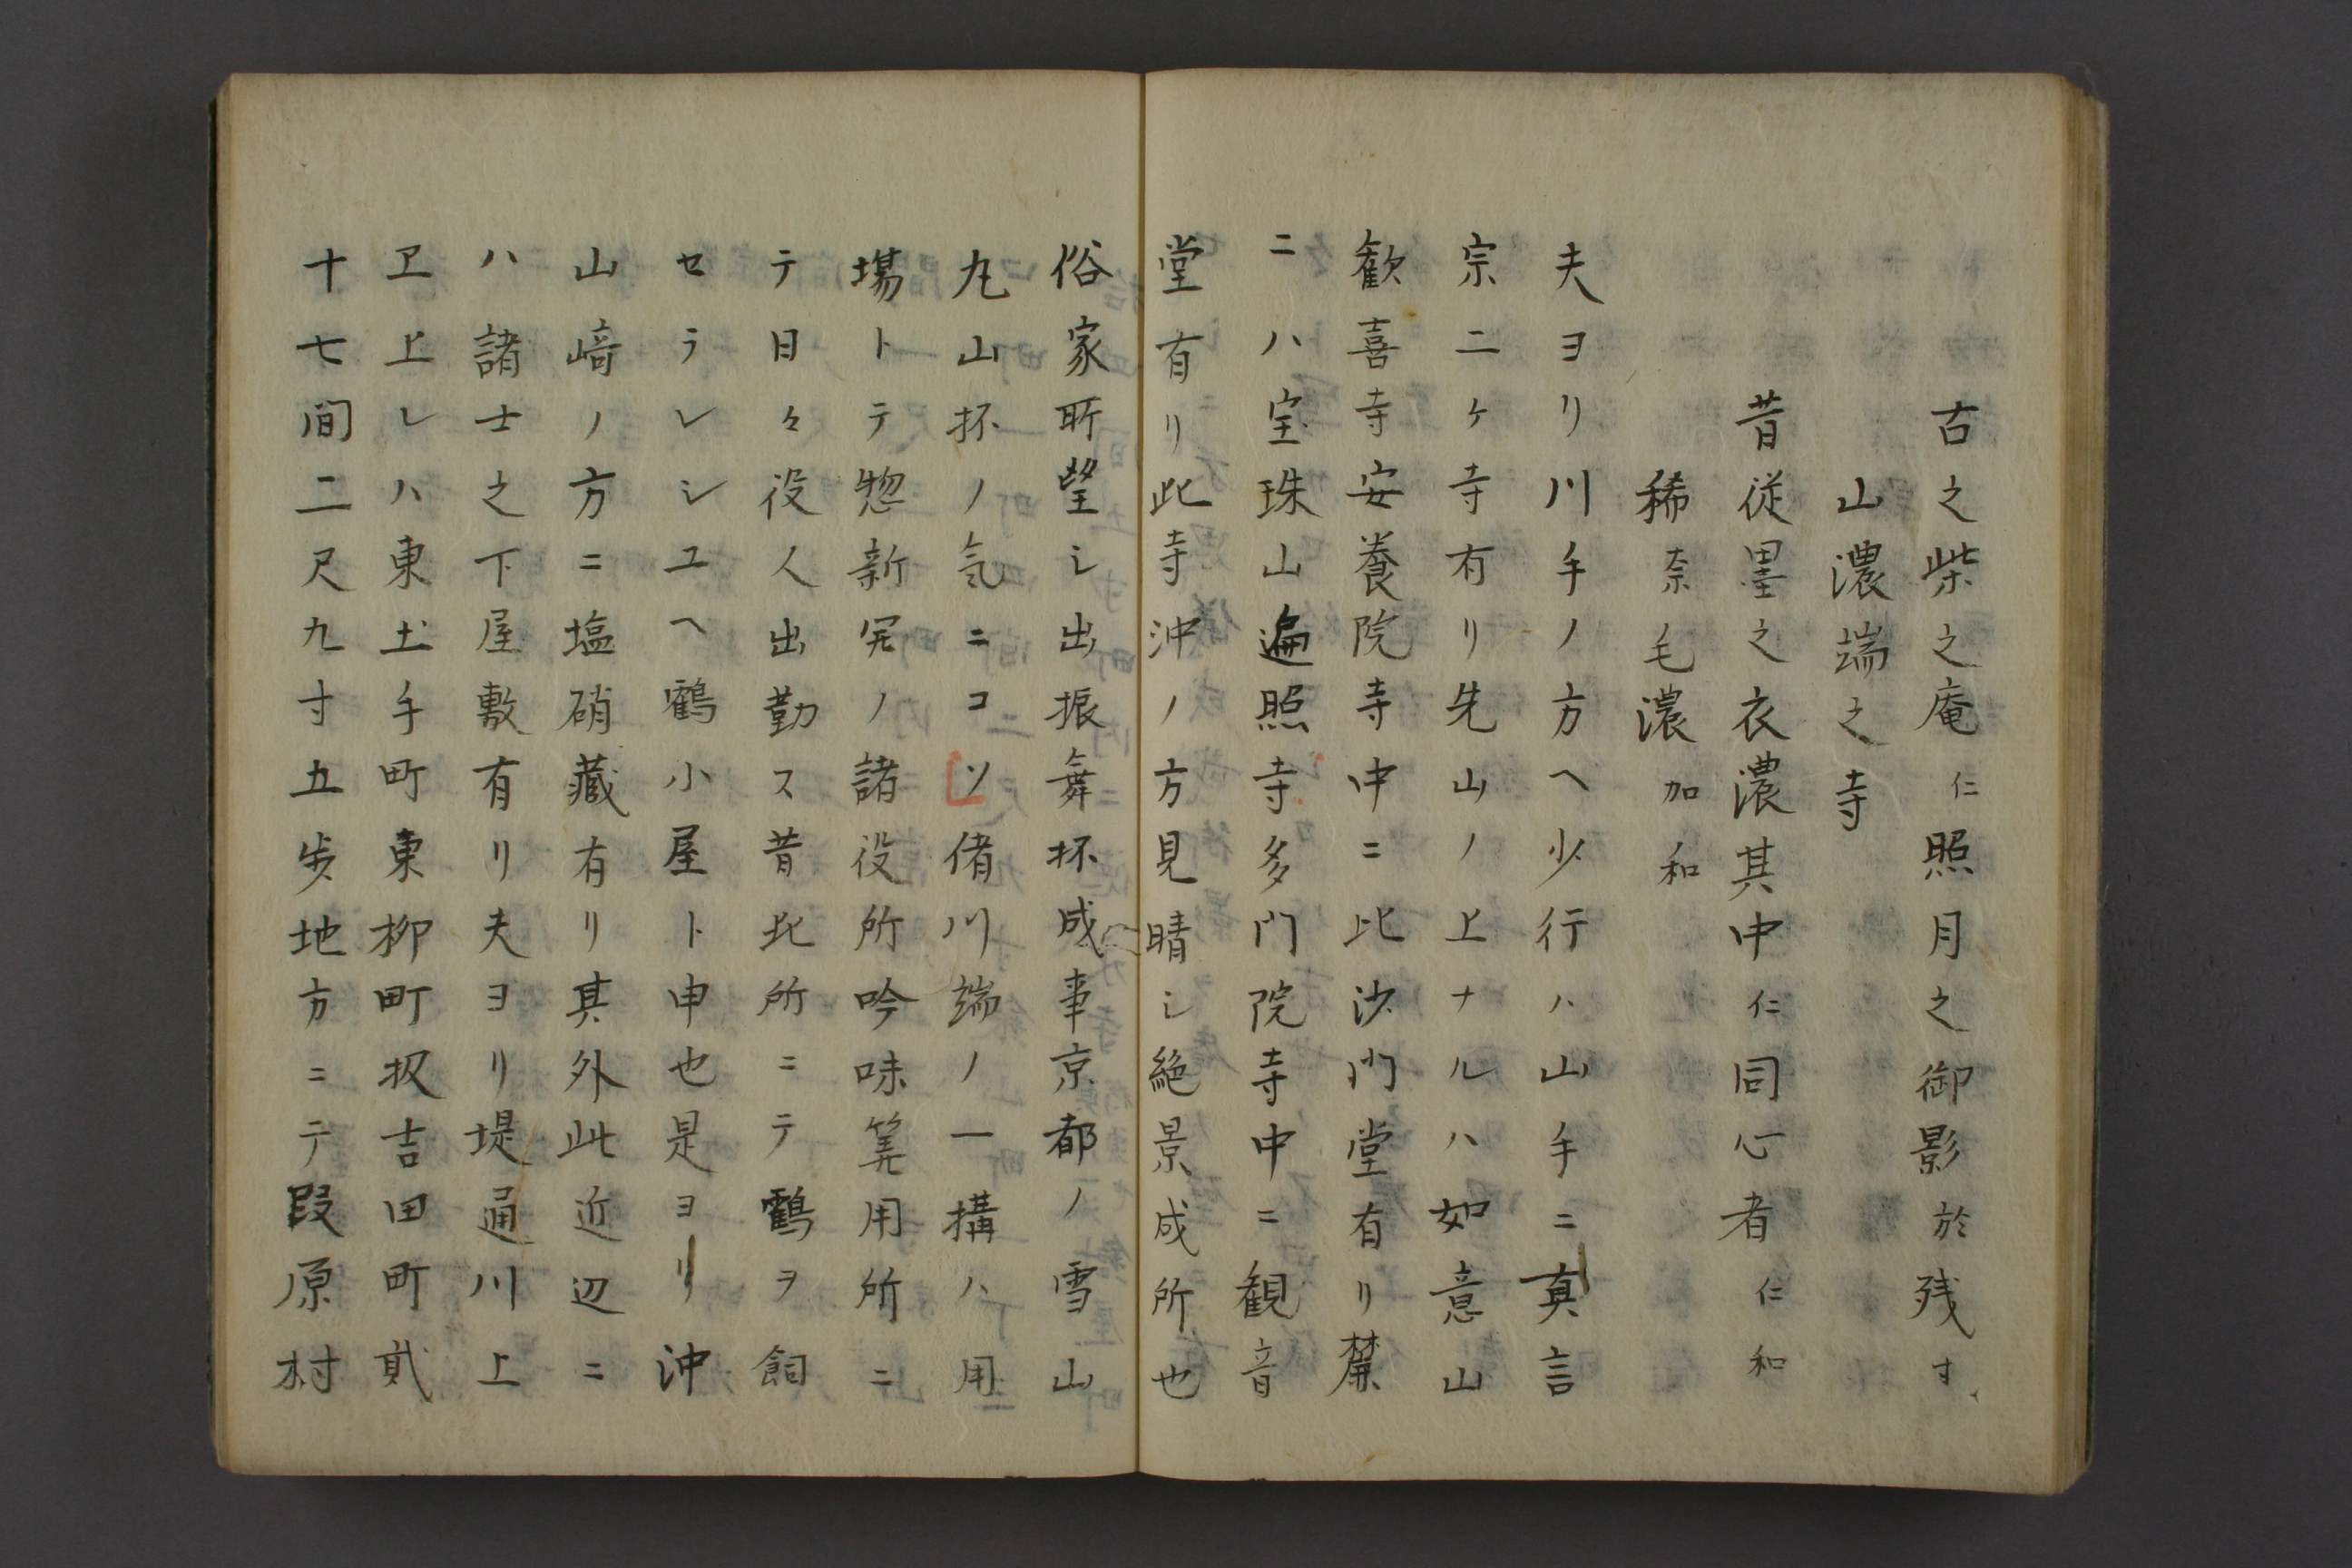 古之柴之庵仁照月之御影於残す
山濃端之寺
昔従墨之衣濃其中仁同心者仁和
稀奈毛濃加和
夫ヨリ川手ノ方ヘ少行ハ山手ニ真言
宗二ヶ寺有リ先山ノ上ナルハ如意山
歓喜寺安養院寺中ニ比沙門堂有リ麓
ニハ宝珠山遍照寺多門院寺中ニ観音
堂有リ此寺沖ノ方見晴し絶景成所也
俗家所望し出振舞抔成事京都ノ雪山
丸山抔ノ気ニコソ偖川端ノ一搆ハ用
場トテ惣新開ノ諸役所吟味筭用所ニ
テ日々役人出勤ス昔此所ニテ鶴ヲ飼
セラレシユヘ鶴小屋ト申也是ヨリ沖
山﨑ノ方ニ塩硝蔵有リ其外此近辺ニ
ハ諸士之下屋敷有リ夫ヨリ堤通川上
ヱ上レハ東土手町東柳町扨吉田町貳
十七間二尺九寸五歩地方ニテ段原村